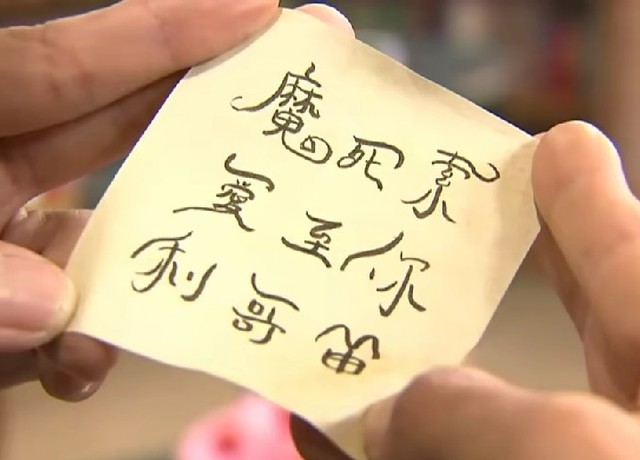 魔死索
愛至你
利哥笛